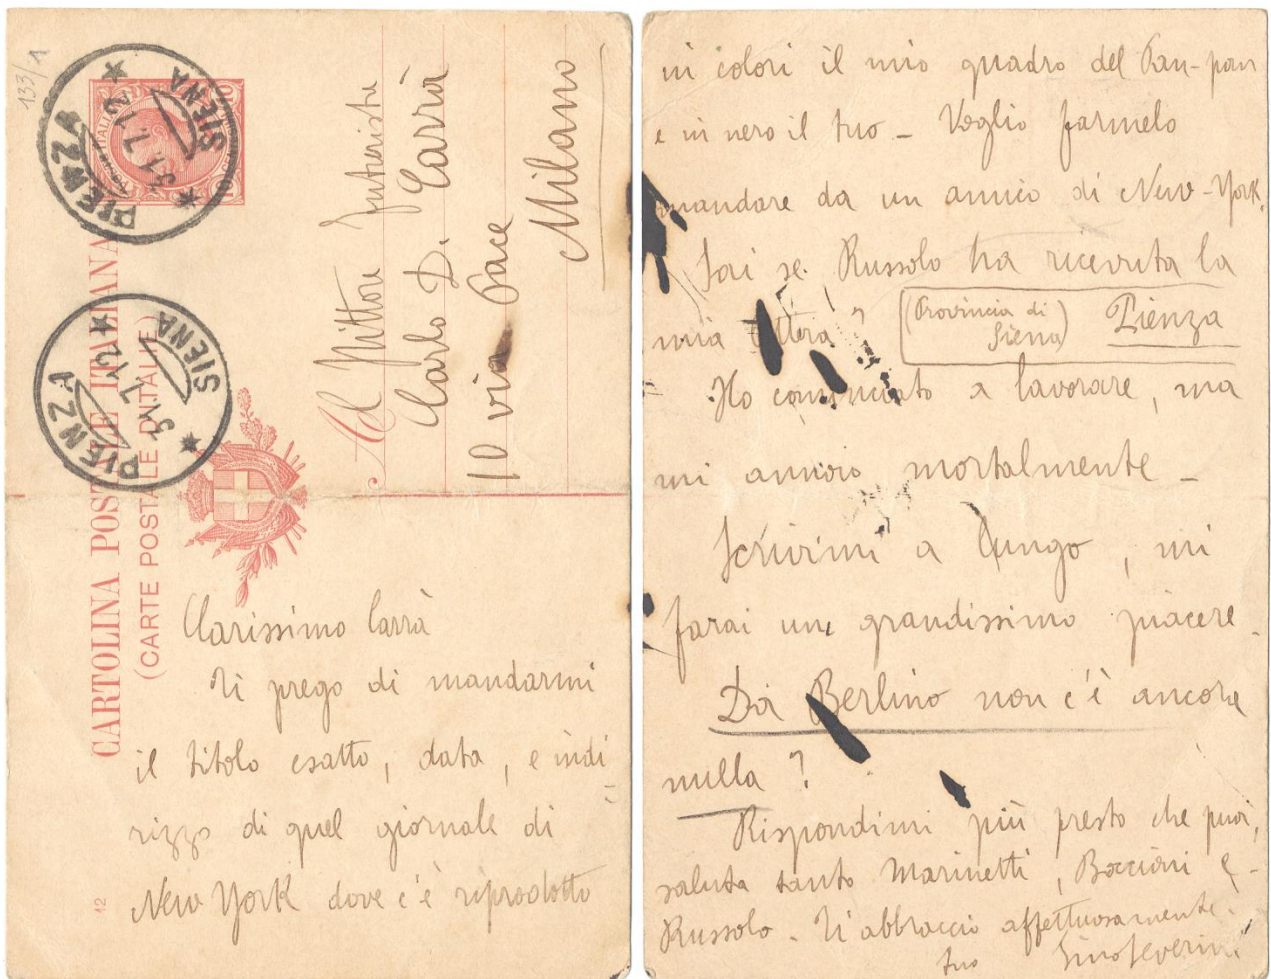 133/1
PIENZA
31.7.12
SIENA
PIENZA
31.7.12
SIENA
CARTOLINA POSTALE ITALIANA
(CARTE POSTALE D'ITALIE)
12
Al Pittore Futurista
Carlo D. Carrà
10 via Pace
Milano
Clarissimo Carrà
Ti prego di mandarmi
il titolo esatto, data, e indi=
rizzo di quel giornale di
New York dove c'è riprodotto
in colori il mio quadro del Pan-pan
e in nero il tuo - Voglio farmelo
mandare da un amico di New-York.
Sai se Russolo ha ricevuta la
mia lettera?
(Provincia di
Siena) Pienza
Ho cominciato a lavorare, ma
mi annoio mortalmente -
Scrivimi a lungo, mi
farai un grandissimo piacere.
Da Berlino non c'è ancora
nulla?
Rispondimi più presto che puoi,
saluta tanto Marinetti, Boccioni e
Russolo. Ti abbraccio affettuosamente.
tuo Gino Severini